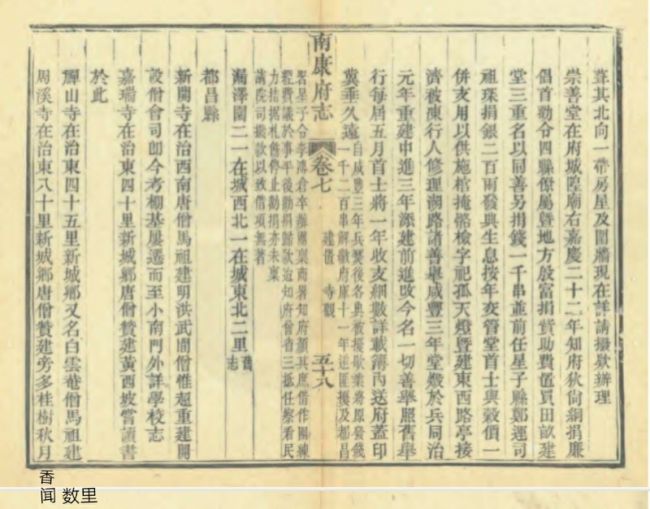 葺其北向一帶房屋及圍牆現在詳請攝欵辦理
崇善堂在府城隍廟右嘉慶二十二年知府狄尙絅捐廉
倡首勸令四縣僚屬曁地方殷富捐貲助費置買田畝建
堂三重名以同善另捐錢一千串並前任星子縣鄭運司
祖琛捐銀二百兩發典生息按年交管堂首士與穀價一
併支用以供施棺掩骼檢字祀孤天燈曁建東西路亭接
濟被凍行人修理湖路諸善舉咸豐三年堂燬於兵同治
元年重建中進三年添建前進改今名一切善舉照舊舉
行每屆五月首士將一年收支細數詳載簿內送府蓋印
冀垂久遠
南康府志
卷七
建置
寺觀
五十八
漏澤園二一在城西北一在城東北二里舊志
都昌縣
新開寺在治西南唐僧馬祖建明洪武間僧惟起重建開
設僧會司卽今考棚基屢遷而至小南門外詳學校志
嘉瑞寺在治東四十里新城鄉唐僧贊建黃西坡嘗讀書
於此
禪山寺在治東四十五里新城鄉又名白雲菴僧馬祖建
周溪寺在治東八十里新城鄉唐僧贊建旁多桂樹秋月
香
闻 数里